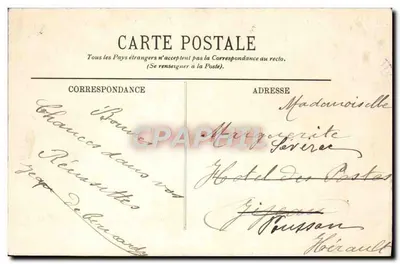 CARTE POSTALE
Tous les Pays étrangers n'acceptent pas la Correspondance au recto.
(Se renseigner à la Poste).
CORRESPONDANCE
ADRESSE
Bonnes
Chances dans vos
Réussites
Mademoiselle
Marguerite
Séverac
Hotel des Postes
Poussan
Hérault
CPARTAMA